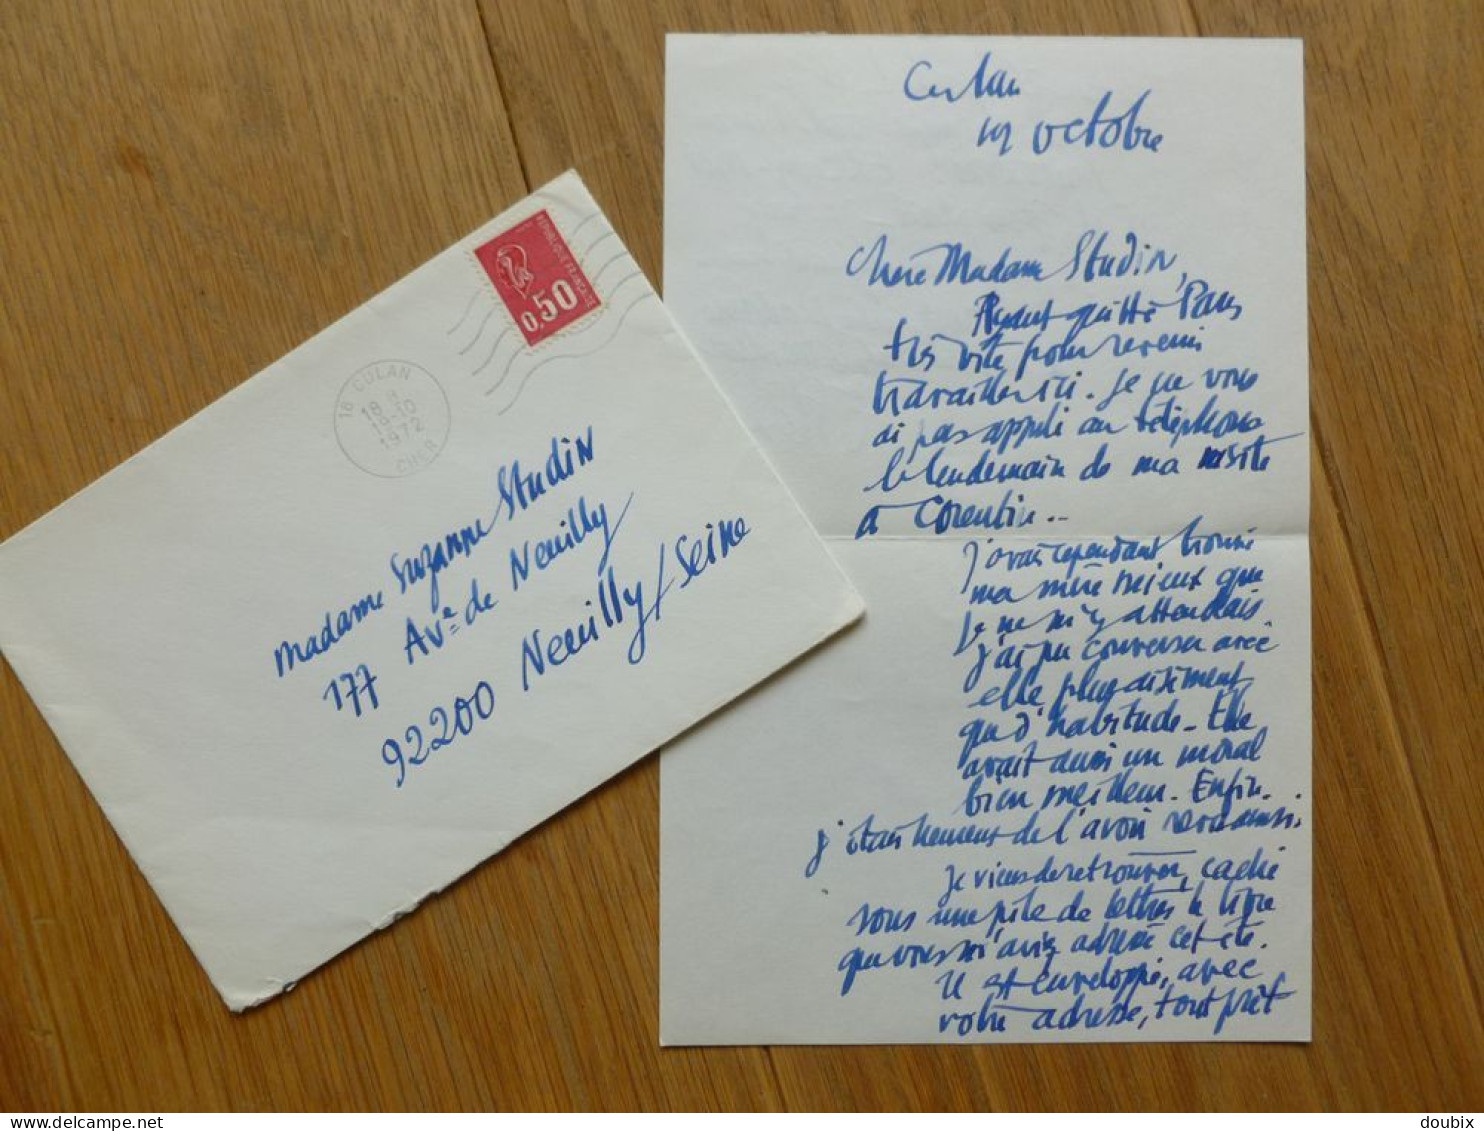 Culan
octobre
Chère Madame Studin,
Ayant quitté Paris
très vite pour revenir
travailler ici. Je ne vous
ai pas appelé au téléphone
le lendemain de ma visite
à Corentin..
j'avais cependant trouvé
ma mère mieux que
je ne m'y attendais.
J'ai pu converser avec
elle plus aisément
que d'habitude. Elle
avait aussi un moral
bien meilleur. Enfin.
j'étais heureux de l'avoir vue ainsi.
Je viens de retrouver, caché
sous une pile de lettres le livre
que vous m'aviez adressé cet été.
Il est enveloppé, avec
votre adresse, tout prêt
REPUBLIQUE FRANÇAISE
0,50
18 CULAN
18 H
18-10
1972
CHER
Madame Suzanne Studin
177 Ave de Neuilly
92200 Neuilly/Seine
doubix
delcampe.net